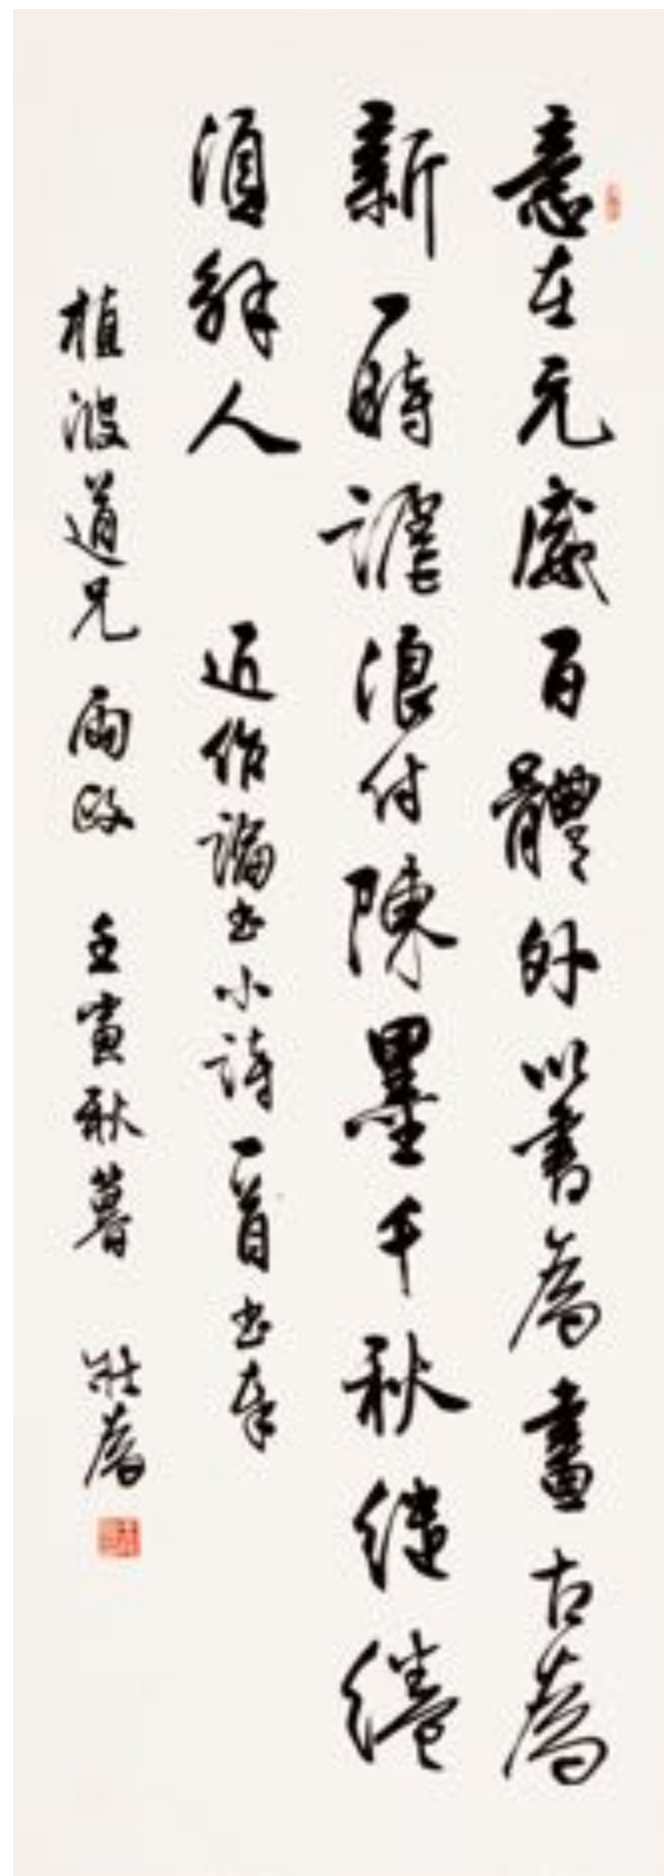 意在元 百體外以書為畫古為
新一時謔浪付陳墨千秋繾綣
須解人 近作論書小詩一首書奉
植波道兄 兩政 壬寅秋暮 壯為